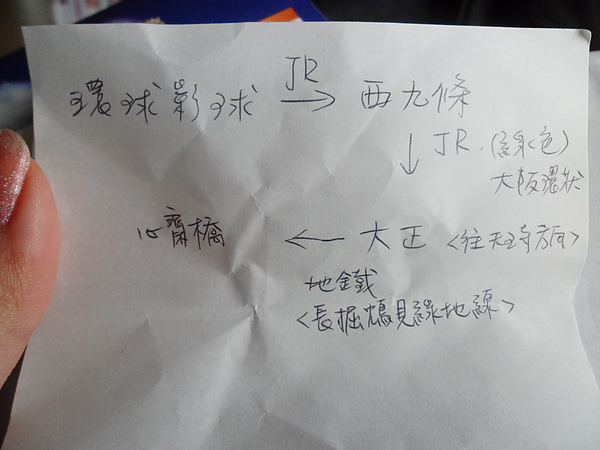 JR
環球影球 → 西九條
↓ JR.(綠色)
大板環狀
心齋橋 ← 大正 <往天王寺方向>
地鐵
<長堀鶴見綠地線>